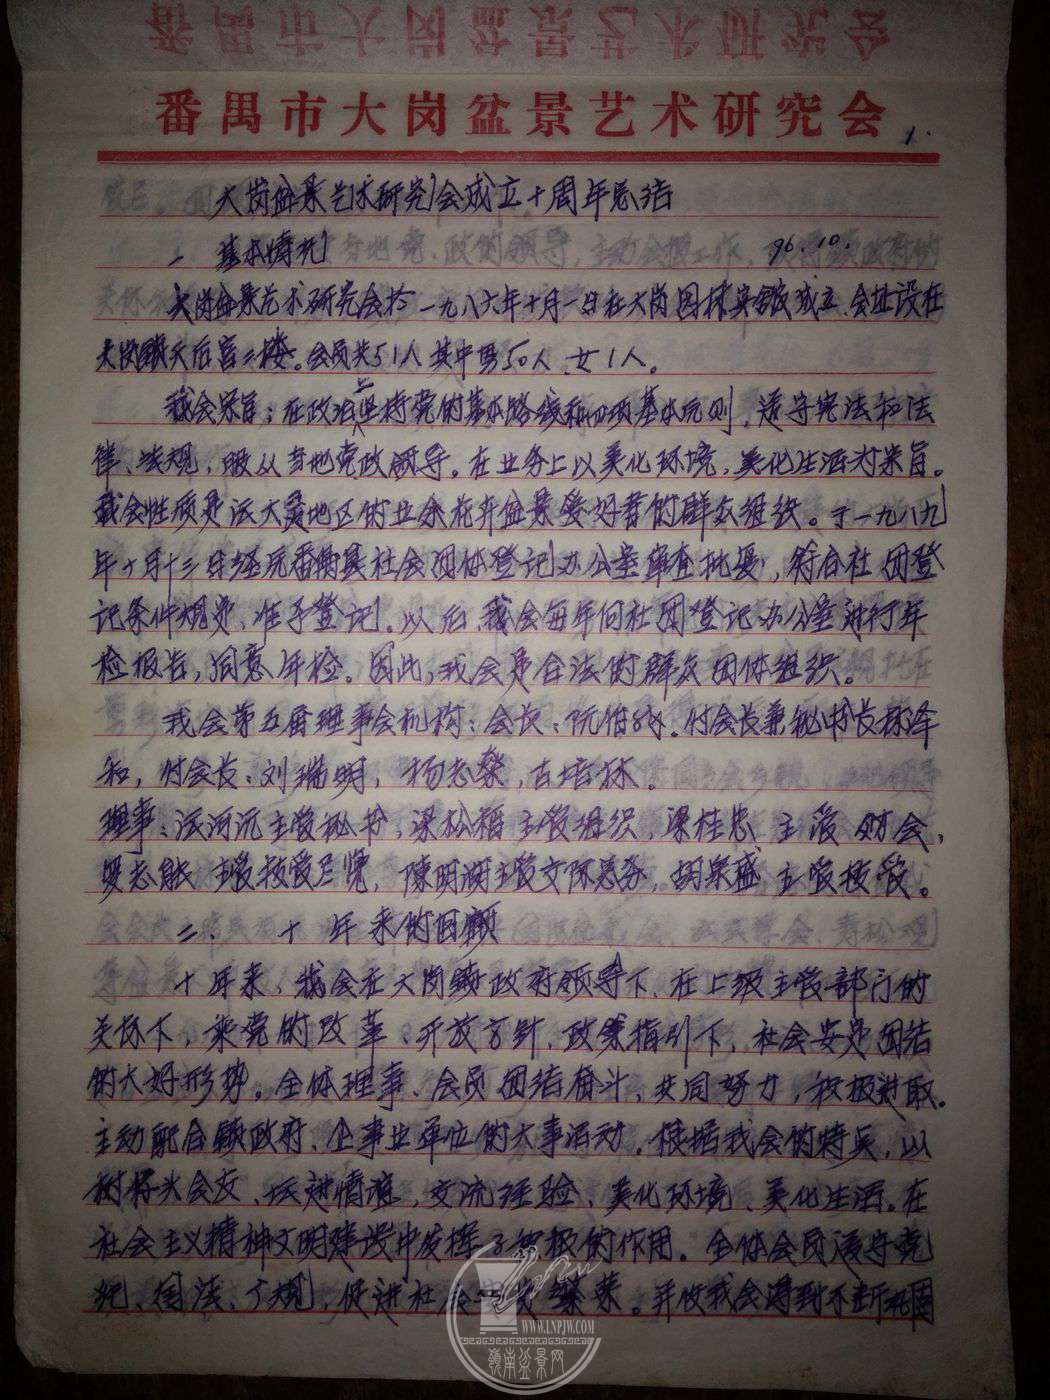 番禺市大岗盆景艺术研究会
1.
大岗盆景艺术研究会成立十周年总结
一 基本情况
96.10.
大岗盆景艺术研究会于一九八六年十月一日在大岗园林宾馆成立、会址设在
大岗镇天后宫二楼。会员共51人其中男50人、女1人。
我会宗旨：在政治上坚持党的基本路线和四项基本原则，遵守宪法和法
律、法规，服从当地党政领导。在业务上以美化环境，美化生活为宗旨。
我会性质是 大岗地区的业余花卉盆景爱好者的群众组织。于一九八九
年十月十三日经 番禺县社会团体登记办公室审查批复，符合社团登
记条件规定、准予登记。以后、我会每年向社团登记办公室进行年
检报告，同意年检。因此，我会是合法的群众团体组织。
我会第五届理事会机构：会长：阮 。付会长兼秘书长 泽
和，付会长：刘瑞明，杨志 ，古培林。
理事、 主管秘书，梁松 主管组织，梁桂忠 主管财会，
罗志能 主管 展览，陳明 主管文 总务，胡荣盛 主管 。
二、 十年来的回顾
十年来，我会在大岗镇政府领导下、在上级主管部门的
关怀下，乘党的改革、开放方针、政策指引下，社会安定团结
的大好形势。全体理事、会员团结奋斗，共同努力，积极进取。
主动配合镇政府、企事业单位的大事活动。根据我会的特点，以
树 会友、 进情谊，交流经验、美化环境、美化生活。在
社会主义精神文明建设中发挥了积极的作用。全体会员遵守党
纪、国法、 规，促进社会 繁荣。并使我会得到不断巩固
WWW.LNPJW.COM
嶺南盆景网